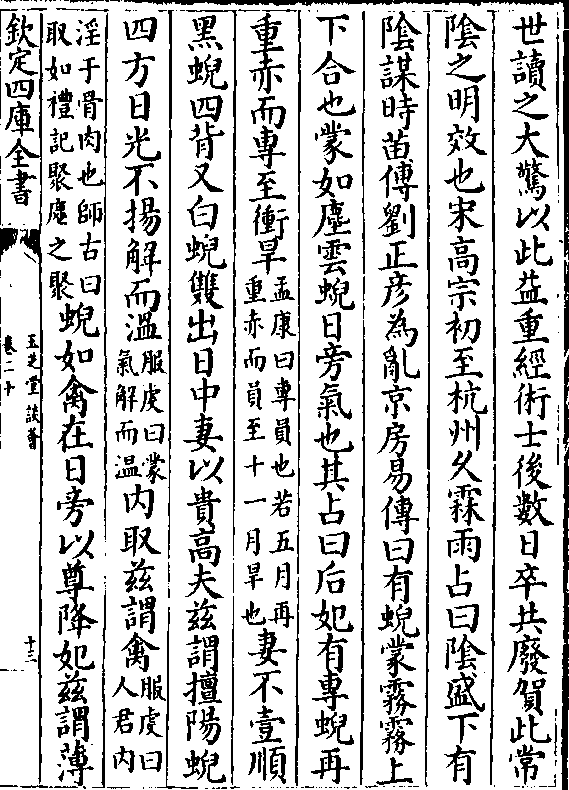 世讀之大驚以此益重經術士後數日卒共廢賀此常
陰之明效也宋高宗初至杭州久霖雨占曰陰盛下有
陰謀時苗傅劉正彦為亂京房易傳曰有蜺蒙霧霧上
下合也蒙如塵雲蜺日旁氣也其占曰后妃有專蜺再
重赤而專至衝旱孟康曰專員也若五月再重赤而員至十一月旱也妻不壹順
黑蜺四背又白蜺雙出日中妻以貴高夫兹謂擅陽蜺
四方日光不揚解而溫服虔曰蒙氣解而温内取兹謂禽服虔曰人君内
淫于骨肉也師古曰取如禮記聚麀之聚蜺如禽在日旁以尊降妃兹謂薄
欽定四庫全書
玉芝堂談薈
卷二十
十三